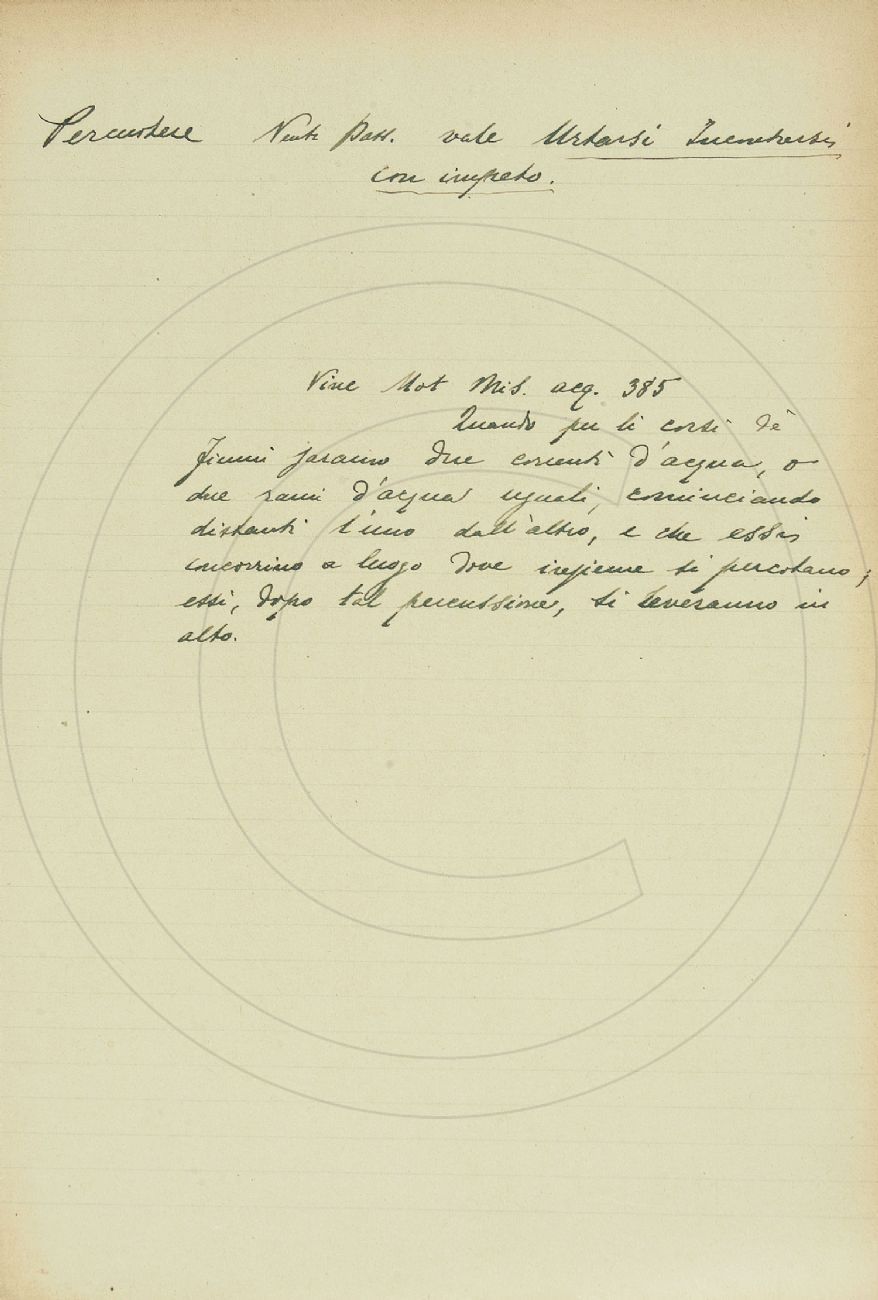 Percuotere Neut. Pass. vale Urtarsi Incontrarsi
con impeto.
Vinc Mot Mis. acq. 385
Quando per li corsi de
fiumi saranno due correnti d'acqua, o
due rami d'acqua uguali, cominciando
distanti l'uno dall'altro, e che essi
concorrino a luogo dove insieme si percotano;
essi, dopo tal percussione, si leveranno in
alto.